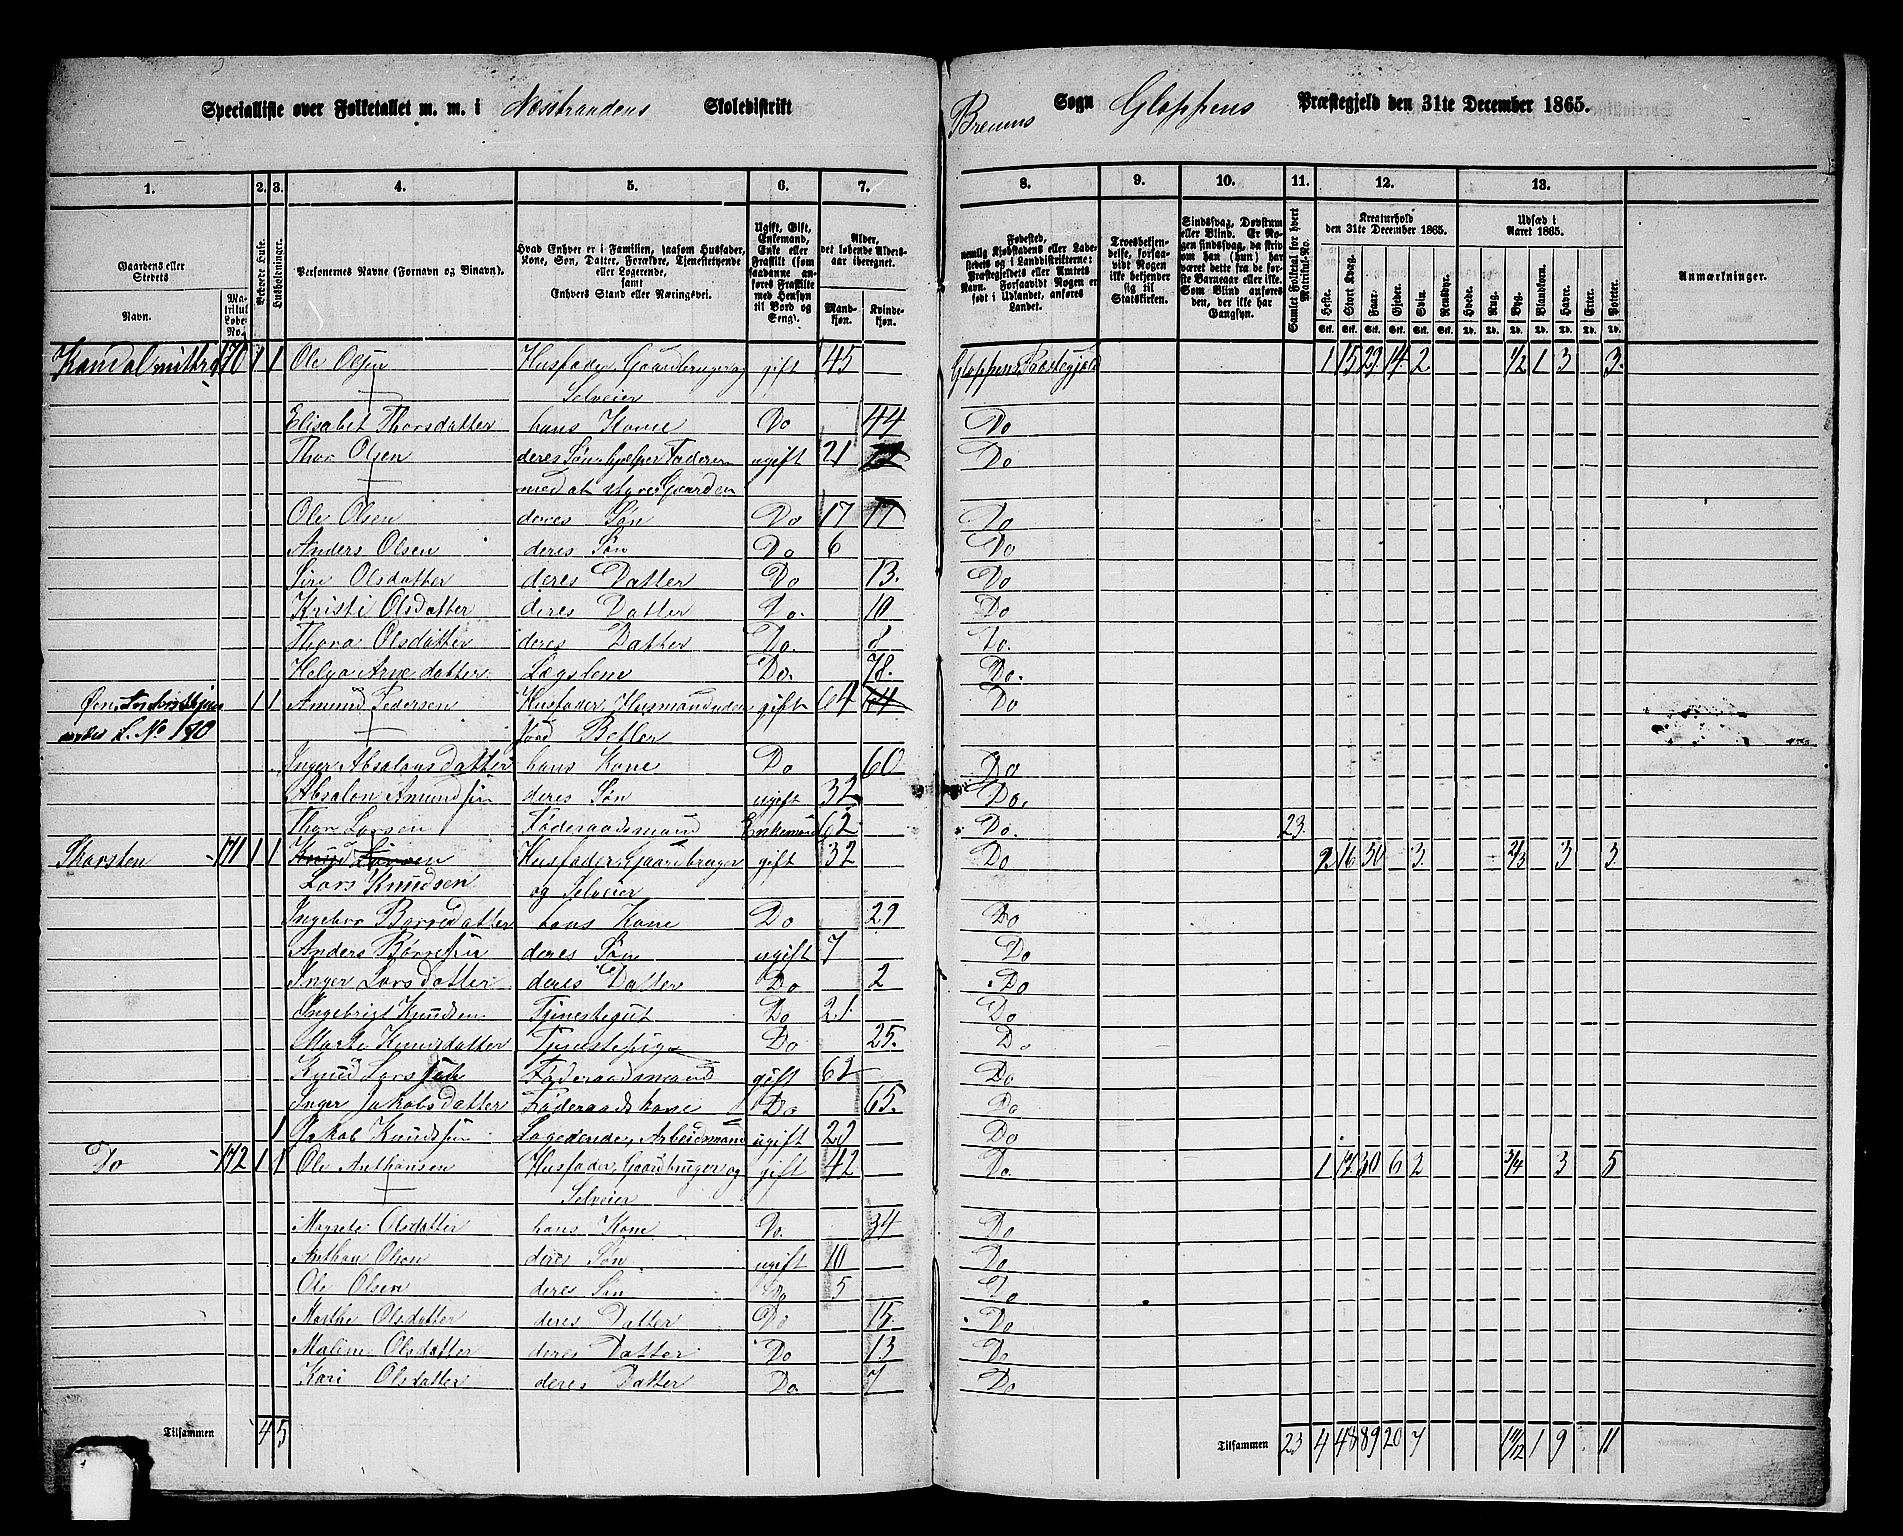 Specialliste over Folketallet m. m. i Næsstrandens Skoledistrikt Breums Sogn Gloppens Præstegjeld den 31te December 1865.
1. 2. 3. 4. 5. 6. 7. 8. 9. 10. 11. 12. 13.
Gaardens eller Stedets Navn.
Matrikul Løbe-No.
Beboede Huse.
Husholdninger.
Personernes Navne (Fornavn og Binavn).
Hvad Enhver er i Familien, saasom Husfader, Kone, Søn, Datter, Forældre, Tjenestetyende eller Logerende, samt Enhvers Stand eller Næringsvei.
Ugift, Gift, Enkemand, Enke eller Fraskilt (som saadanne anføres Fraskilte med Hensyn til Bord og Seng).
Alder, det løbende Aldersaar iberegnet.
Mandkjøn. Kvindekjøn.
Fødested, nemlig Kjøbstadens eller Ladestedets og i Landdistrikterne: Præstegjeldets eller Amtets Navn. Forsaavidt Nogen er født i Udlandet, anføres Landet.
Troesbekjendelse, forsaavidt Nogen ikke bekjender sig til Statskirken.
Sindssvag, Døvstum eller Blind. Er Nogen sindssvag, da skrives om han (hun) har været dette fra de første Barneaar eller ikke. Som Blind anføres den, der ikke har Gangsyn.
Samlet Folketal for hvert Matrikul-No.
Kreaturhold den 31te December 1865.
Heste. Stort Kvæg. Faar. Gjeder. Svin. Rensdyr.
Udsæd i Aaret 1865.
Hvede. Rug. Byg. Blandkorn. Havre. Erter. Poteter.
Anmærkninger.
Kandal midtre 170 1 1 Ole Olsen Husfader, Gaardbruger og gift 45 Gloppens Præstegjeld 1 15 29 14 2 1/2 1 3 3.
Selveier
Elisabet Thorsdatter hans Kone Do 44 Do
Thor Olsen deres Søn, hjelper Faderen ugift 21 Do
med at styre Gaarden
Ole Olsen deres Søn Do 17 17 Do
Anders Olsen deres Søn Do 6 Do
Siri Olsdatter deres Datter Do 13. Do
Kristi Olsdatter deres Datter Do. 10 Do
Thora Olsdatter deres Datter Do. 8 Do.
Helga Arnedatter Lægslem Do. 78. Do.
1 1 Amund Pedersen Husfader, Husmand uden gift 64 64 Do
under L. No 170 Jord Betler
Inger Absalonsdatter hans Kone Do 60 Do
Absalon Amundsen deres Søn ugift 32 Do.
Thor Larsen Føderaadsmand Enkemand 62 Do. 23.
Skorsten 171 1 1 Knud Larsen Husfader, Gaardbruger gift 32 Do 2 16 30 3. 2/3 3 3.
Lars Knudsen og Selveier
Ingebor Børresdatter hans Kone Do 29 Do
Anders Børresen deres Søn ugift 7 Do
Inger Larsdatter deres Datter Do 2 Do
Ingebrigt Knudsen Tjenestegut Do 21 Do
Marte Knudsdatter Tjenestepige Do 25. Do
Knud Larssen Føderaadsmand gift 62 Do
Inger Jakobsdatter Føderaadskone Do 65. Do
1 Jakob Knudsen Logerende, Arbeidsmand ugift 29 Do
Do 172 1 1 Ole Anthonsen Husfader, Gaardbruger og gift 42 Do. 1 17 30 6 2 3/4 3 5
Selveier
Magrete Olsdatter hans Kone Do. 34 Do
Anthon Olsen deres Søn ugift 10 Do
Ole Olsen deres Søn Do 5 Do
Marthe Olsdatter deres Datter Do 15. Do
Maline Olsdatter deres Datter Do 13 Do
Kari Olsdatter deres Datter Do. 7 Do
Tilsammen 4 5 Tilsammen 23 4 48 89 20 7 1 9 11